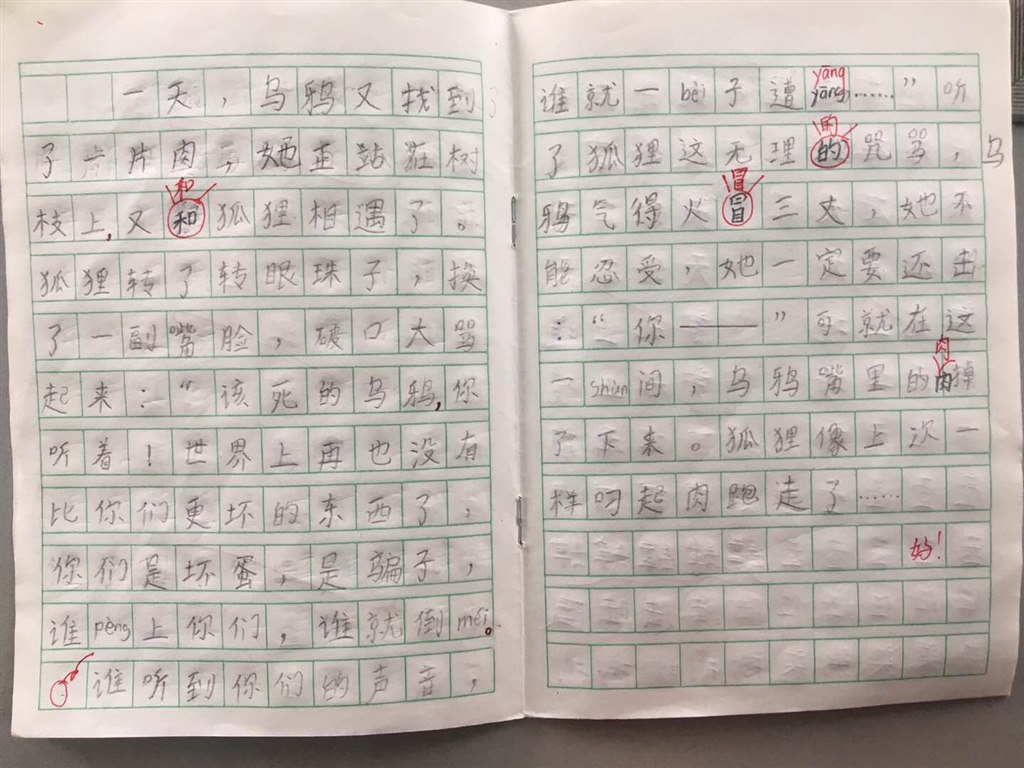 一天，乌鸦又找到
了一片肉，她正站在树
枝上，又和狐狸相遇了。
狐狸转了转眼珠子，换
了一副嘴脸，破口大骂
起来：“该死的乌鸦，你
听着！世界上再也没有
比你们更坏的东西了，
你们是坏蛋，是骗子，
谁pèng上你们，谁就倒méi。
谁听到你们的声音，
谁就一bèi子遭yāng……”听
了狐狸这无理的咒骂，乌
鸦气得火冒三丈，她不
能忍受，她一定要还击
：“你——”可就在这
一shùn间，乌鸦嘴里的肉掉
了下来。狐狸像上次一
样叼起肉跑走了……
好！